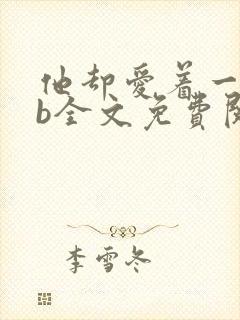 他却爱着一
b全文免费阅
李雪冬